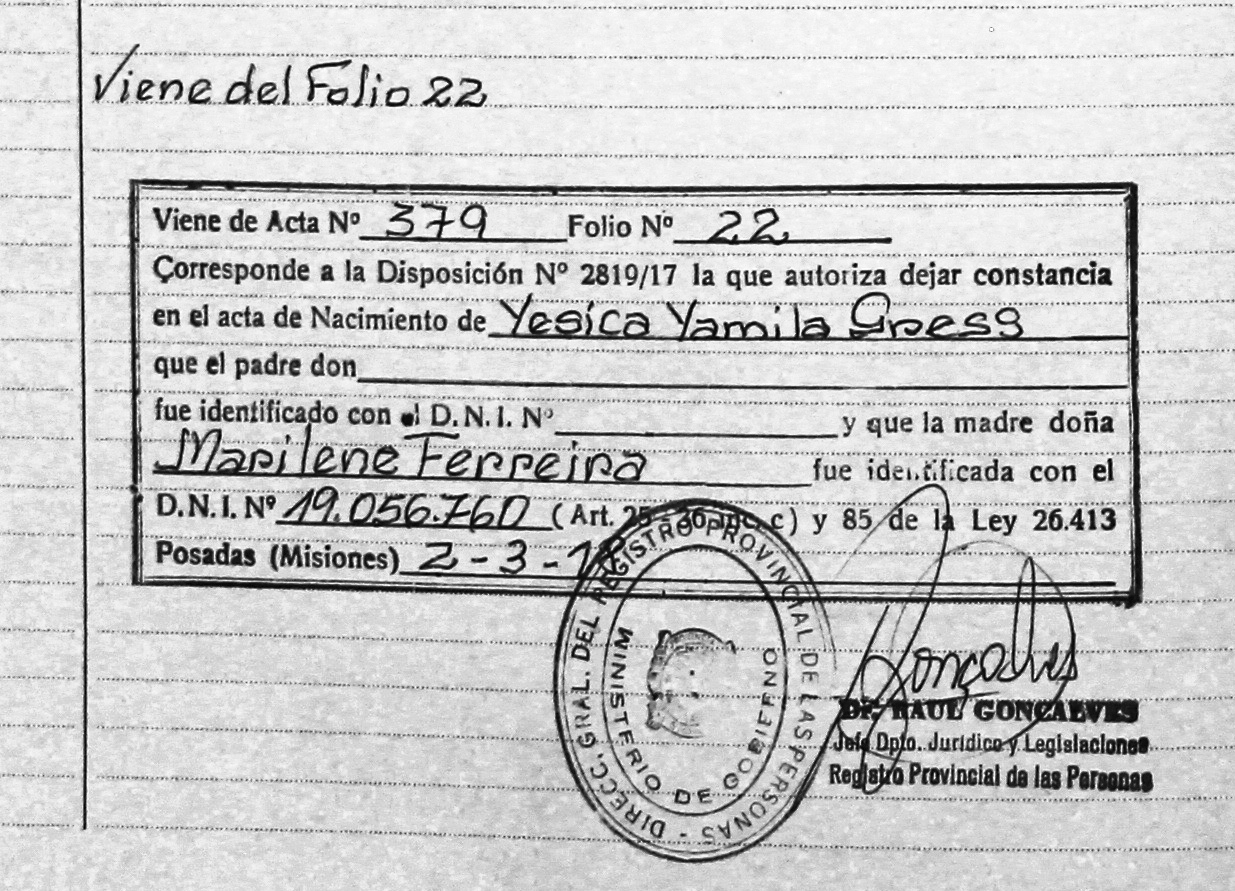 Viene del Folio 22
Viene de Acta Nº 379 Folio Nº 22
Corresponde a la Disposición Nº 2819/17 la que autoriza dejar constancia
en el acta de Nacimiento de Yesica Yamila Gress
que el padre don
fue identificado con el D.N.I. Nº y que la madre doña
Marilene Ferreira fue identificada con el
D.N.I. Nº 19.056.760 (Art. 25 36 inc. c) y 85 de la Ley 26.413
Posadas (Misiones) 2-3-18
DIRECC. GRAL. DEL REGISTRO PROVINCIAL DE LAS PERSONAS -
MINISTERIO DE GOBIERNO
Gonçalves
Dr. RAUL GONCALVES
Jefe Dpto. Jurídico y Legislaciones
Registro Provincial de las Personas